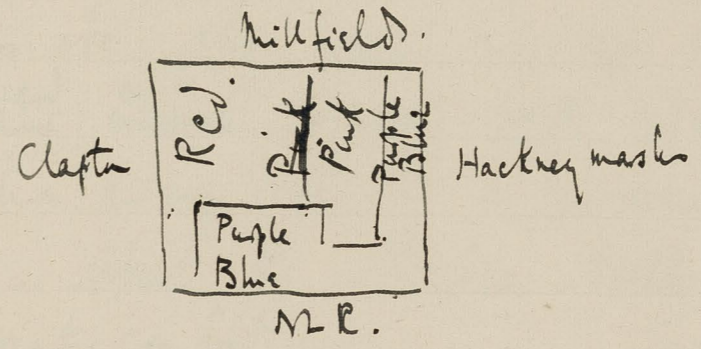 Millfields.
Clapton
Red.
Pink
Pink
Purple
Blue
Hackney marsh
Purple
Blue
N L R.